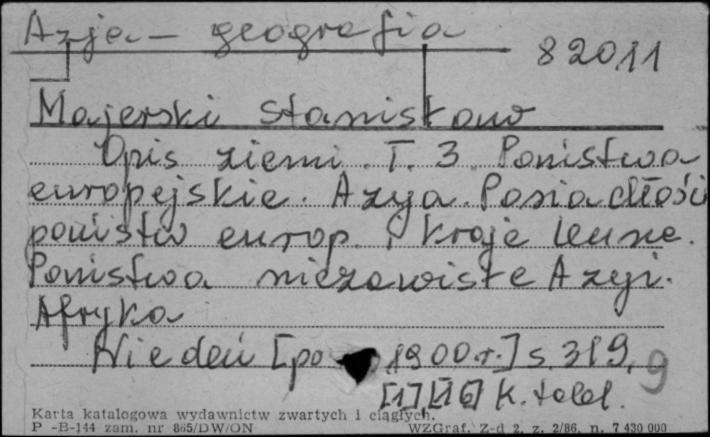 Azja - geografia
82011
Majerski Stanisław
Opis ziemi. T. 3. Państwa
europejskie. Azya. Posiadłości
państw europ. i kraje lenne.
Państwa niezawisłe Azyi.
Afryka
Wiedeń [po 1900 r.] s. 319,
[1] [16] k. tabl. 9
Karta katalogowa wydawnictw zwartych i ciągłych.
P -B-144 zam. nr 865/DW/ON WZGraf. Z-d 2, z. 2/86, n. 7 430 000